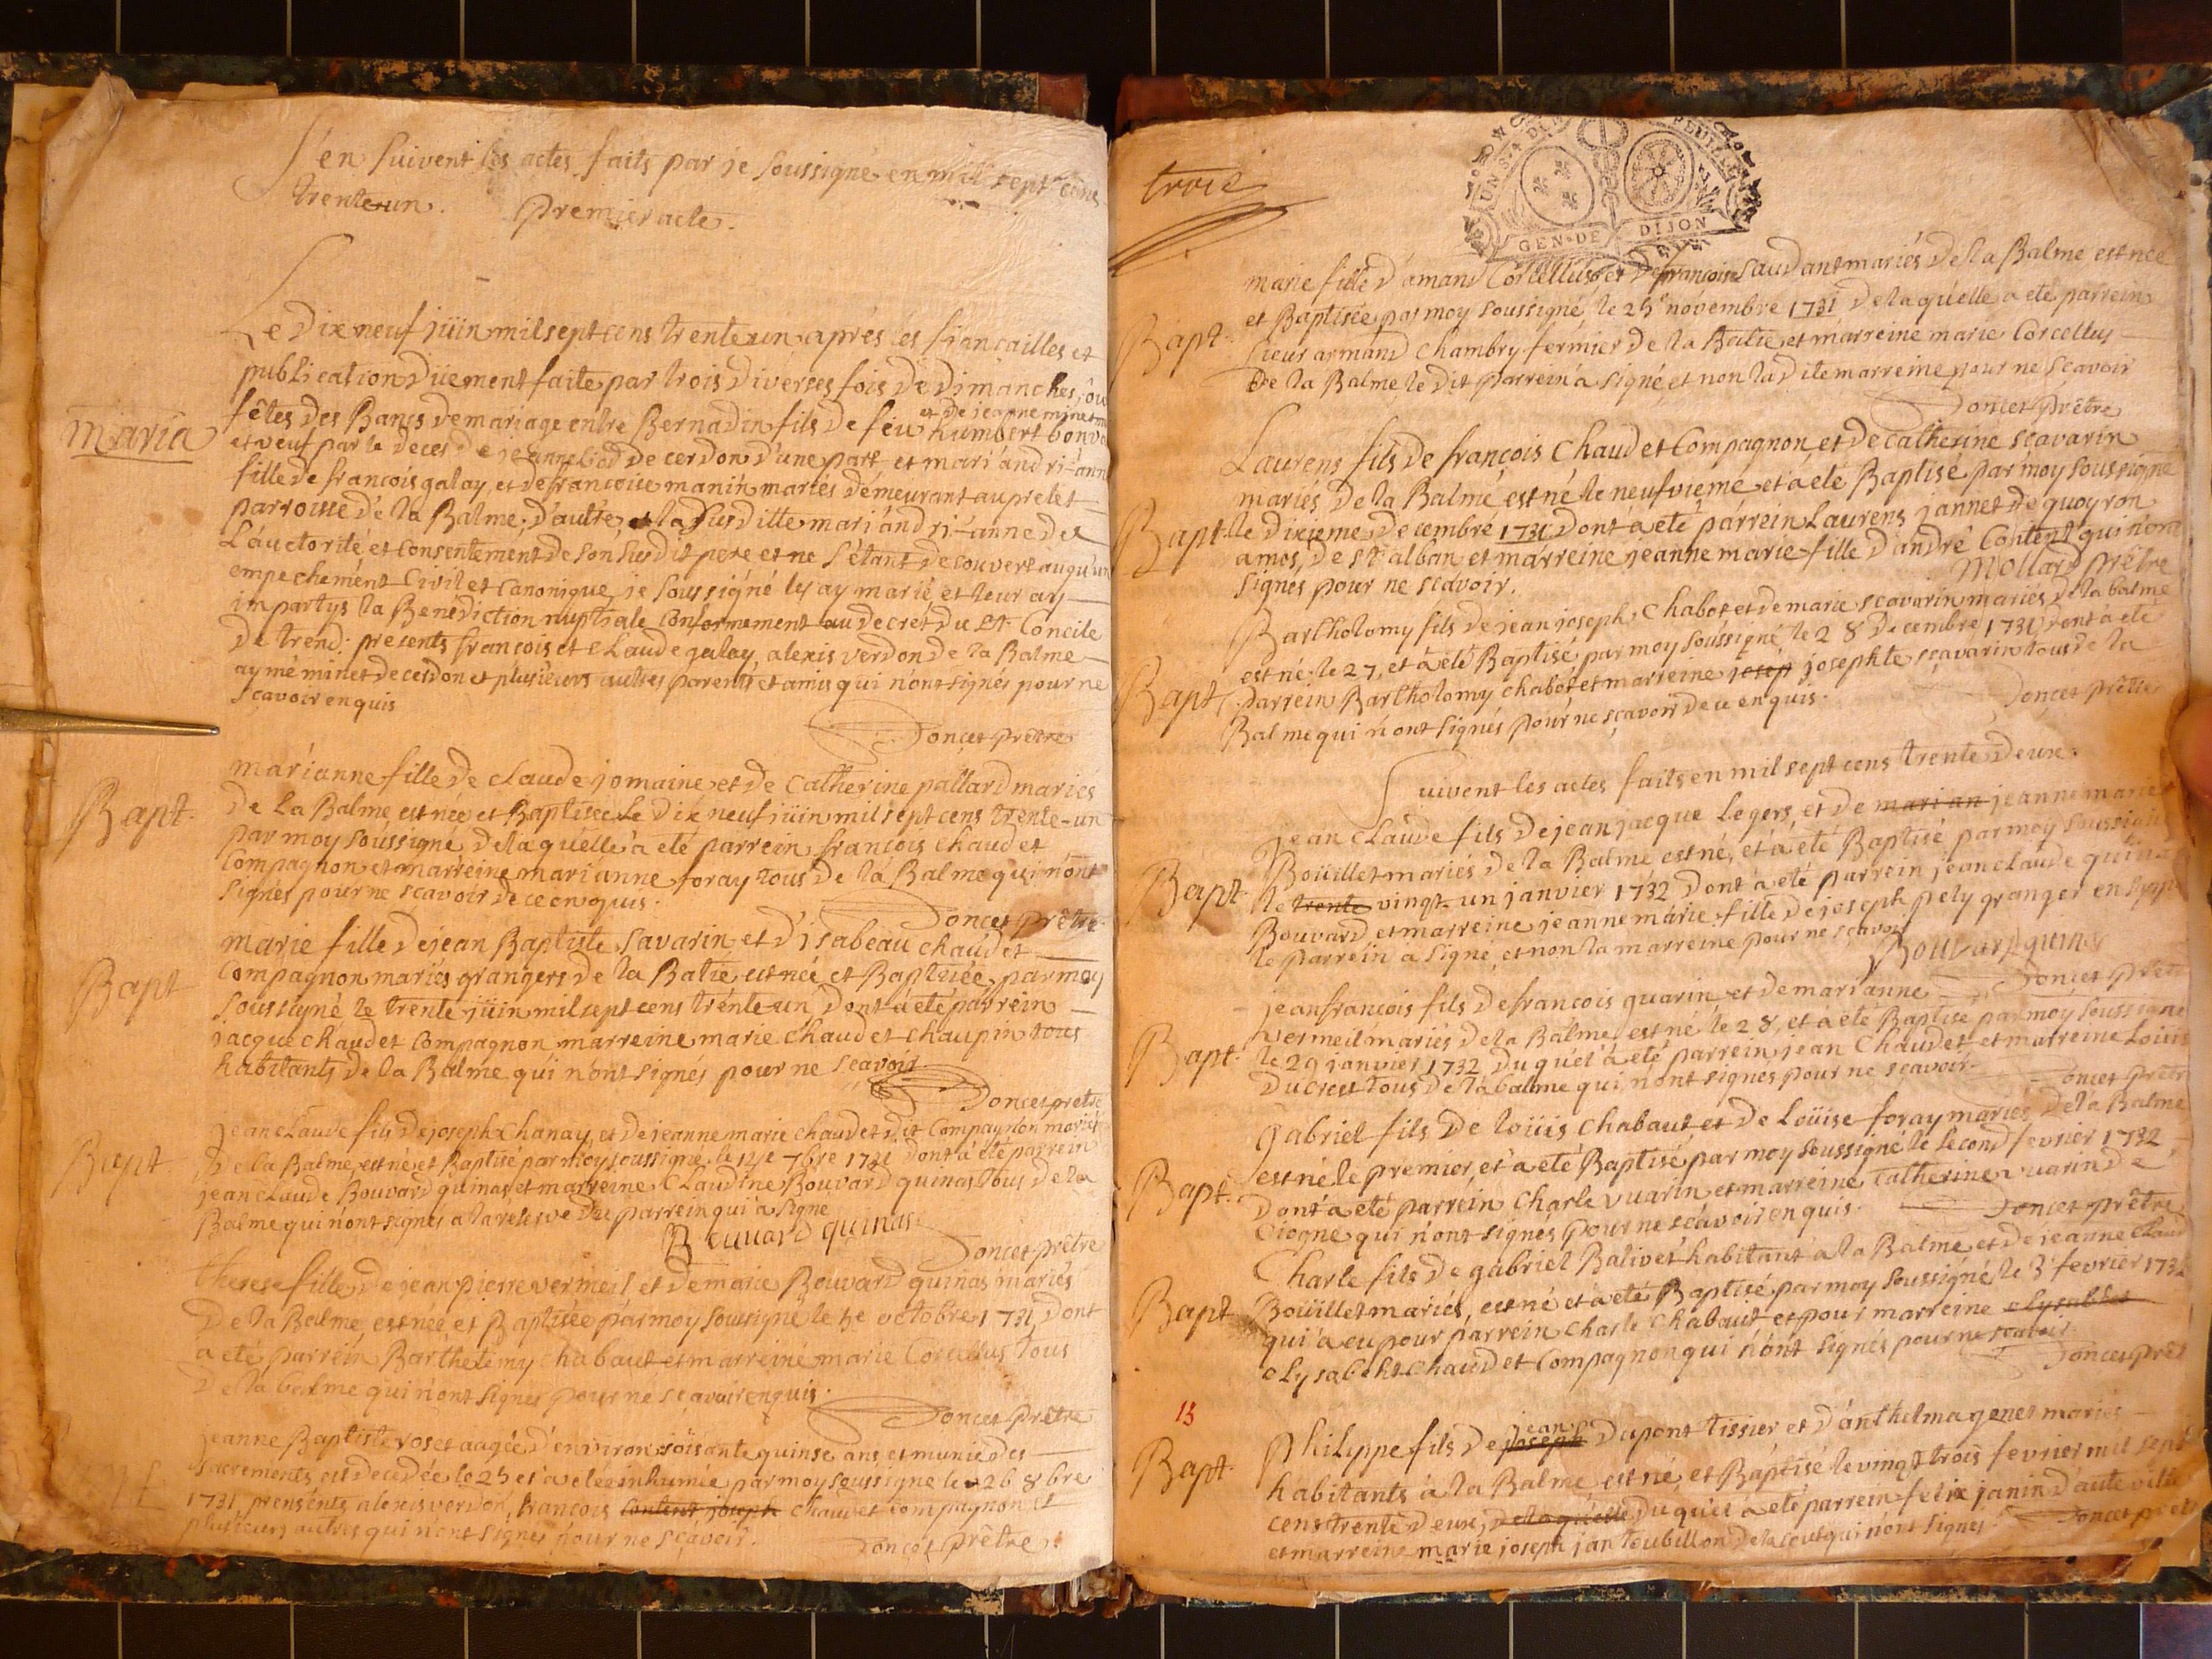 S'en suivent les actes faits par je soussigné en mil sept cens
trente-un. Premier acte.
Le dix neuf jüin mil sept cens trente un après les fiançailles et
publication düement faite par trois diverses fois de dimanches, ou
et de jeanne minet
maria fêtes des Bancs de mariage entre Bernadin fils de feu humbert
et veuf par le deces de jeanne de cerdon d'une part et mari'andri-anne
fille de francois galay, et de francoise manin mariés demeurant au prelet
parroisse de la Balme, d'autre, la susditte mari'andri-anne de
L'auctorité et consentement de son susdit pere et ne s'etant decouvert auqu'un
empechement civil et canonique, je soussigné les ay marié, et leur ay
impartys la Benédiction nuptiale conformement au decret du St Concile
de trend: presents francois et claude galay, alexis verdon de la Balme
aymé minet de cerdon et plusieurs autres parents et amis qui n'ont signés pour ne
scavoir enquis
Doncet prêtre
marianne fille de claude jomaine et de catherine pallard mariés
Bapt. de la Balme est née et Baptisée le dix neuf jüin mil sept cens trente-un
par moy soussigné de laquelle à eté parrein francois chaudet
compagnon et marreine marianne foray tous de la Balme qui n'ont
signés pour ne scavoir de ce enquis.
Doncet prêtre
marie fille de jean Baptiste savarin et d'isabeau chaudet
Bapt compagnon mariés grangers de la Batie est née et Baptisée par moy
soussigné le trente jüin mil sept cens trente un dont à eté parrein
jacque chaudet compagnon marreine marie chaudet chaupin tous
habitants de la Balme qui n'ont signés pour ne scavoir
Doncet prêtre
jean claude fils de joseph chanay, et de jeanne marie chaudet dit compagnon mariés
Bapt. de la Balme, est né et Baptisé par moy soussigné le 14e 7bre 1731 dont à eté parrein
jean claude Bouvard quinas et marreine claudine Bouvard quinas tous de la
Balme qui n'ont signés à la reserve du parrein qui à signé
Bouvard quinas
Doncet prêtre
therese fille de jean pierre vermeil et de marie Bouvard quinas mariés
de la Balme, est née et Baptisée par moy soussigné le 5e octobre 1731 dont
a eté parrein Barthelemy chabaut et marreine marie Corcellus tous
de la balme qui n'ont signés pour ne scavoir enquis.
Doncet prêtre
jeanne Baptiste roset aagée d'environ soisante quinse ans, et munie des
sacrements est decedée le 25 et a eté inhumée par moy soussigné le 26 8bre
1731, presents alexis verdon, francois content joseph chaudet compagnon et
plusieurs autres qui n'ont signés pour ne scavoir.
Doncet prêtre
trois
GEN·DE DIJON
marie fille d'amand Corcellus et de francoise Saudant mariés de la Balme est née
et Baptisée par moy soussigné le 25e novembre 1731 de laquelle a eté parrein
Bapt. sieur armand chambry fermier de la Batie, et marreine marie Corcellus
de la Balme, le dit parrein à signé, et non la dite marreine pour ne scavoir
Doncet Prêtre
Laurens fils de françois chaudet compagnon et de catherine scavarin
mariés de la Balme est né le neufvieme et à eté Baptisé par moy soussigné
Bapt. le dixieme decembre 1731 dont à eté parrein Laurens jannet de quoyron
amos, de st alban et marreine jeanne marie fille d'andré Content qui n'ont
signés pour ne scavoir.
Mollard prêtre
Bartholomy fils de jean joseph chabot et de marie scavarin mariés de la balme
est né le 27, et à eté Baptisé par moy soussigné le 28 decembre 1731, dont à eté
Bapt. parrein Bartholomy chabot et marreine josep josephte scavarin tous de la
Balme qui n'ont signés pour ne scavoir de ce enquis.
Doncet prêtre
Suivent les actes faits en mil sept cens trente deux.
jean claude fils de jean jacque Legers, et de mari an jeanne marie
Boüillet mariés de la Balme est né, et à eté Baptisé par moy soussigné
Bapt. le trente vingt-un janvier 1732 dont à eté parrein jean claude quinas
Bouvard et marreine jeanne marie fille de joseph pely granger en
le parrein a signé, et non la marreine pour ne scavoir
Bouvard quinas
Doncet prêtre
jean francois fils de francois guarin, et de marianne
vermeil mariés de la Balme est né le 28, et à eté Baptisé par moy soussigné
Bapt. le 29 janvier 1732 duquel à eté parrein jean chaudet et marreine Louise
ducret tous de la balme qui n'ont signés pour ne scavoir.
Doncet prêtre
Gabriel fils de Loüis chabaut et de Loüise foray mariés de la Balme
est né le premier, et a eté Baptisé par moy soussigné le second fevrier 1732
Bapt. dont à eté parrein charle vuarin et marreine catherine vuarin de
ciogne qui n'ont signés pour ne scavoir enquis.
Doncet prêtre
Charle fils de gabriel Balivet habitant à la Balme et de jeanne claud
Bapt. Boüillet mariés, est né et à eté Baptisé par moy soussigné le 3e fevrier 1732
qui a eu pour parrein charle chabaut et pour marreine elysabet
elysabeht chaudet compagnon qui n'ont signés pour ne scavoir
Doncet prêt
13
jean
Bapt. Philippe fils de joseph dupont tissier et d'anthelma genet mariés
habitants à la Balme, est né, et Baptisé le vingt trois fevrier mil sept
cens trente deux, de laquelle duquel a eté parrein felix janin d'auteville
et marreine marie joseph jantoubillon de la coux qui n'ont signés.
Doncet prêt